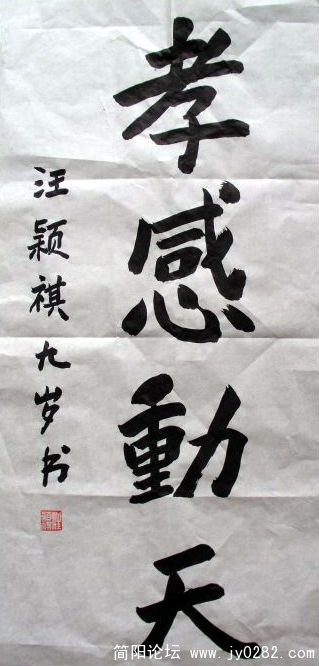 孝感動天
汪颖祺九岁书
简阳论坛 www.jy0282.com